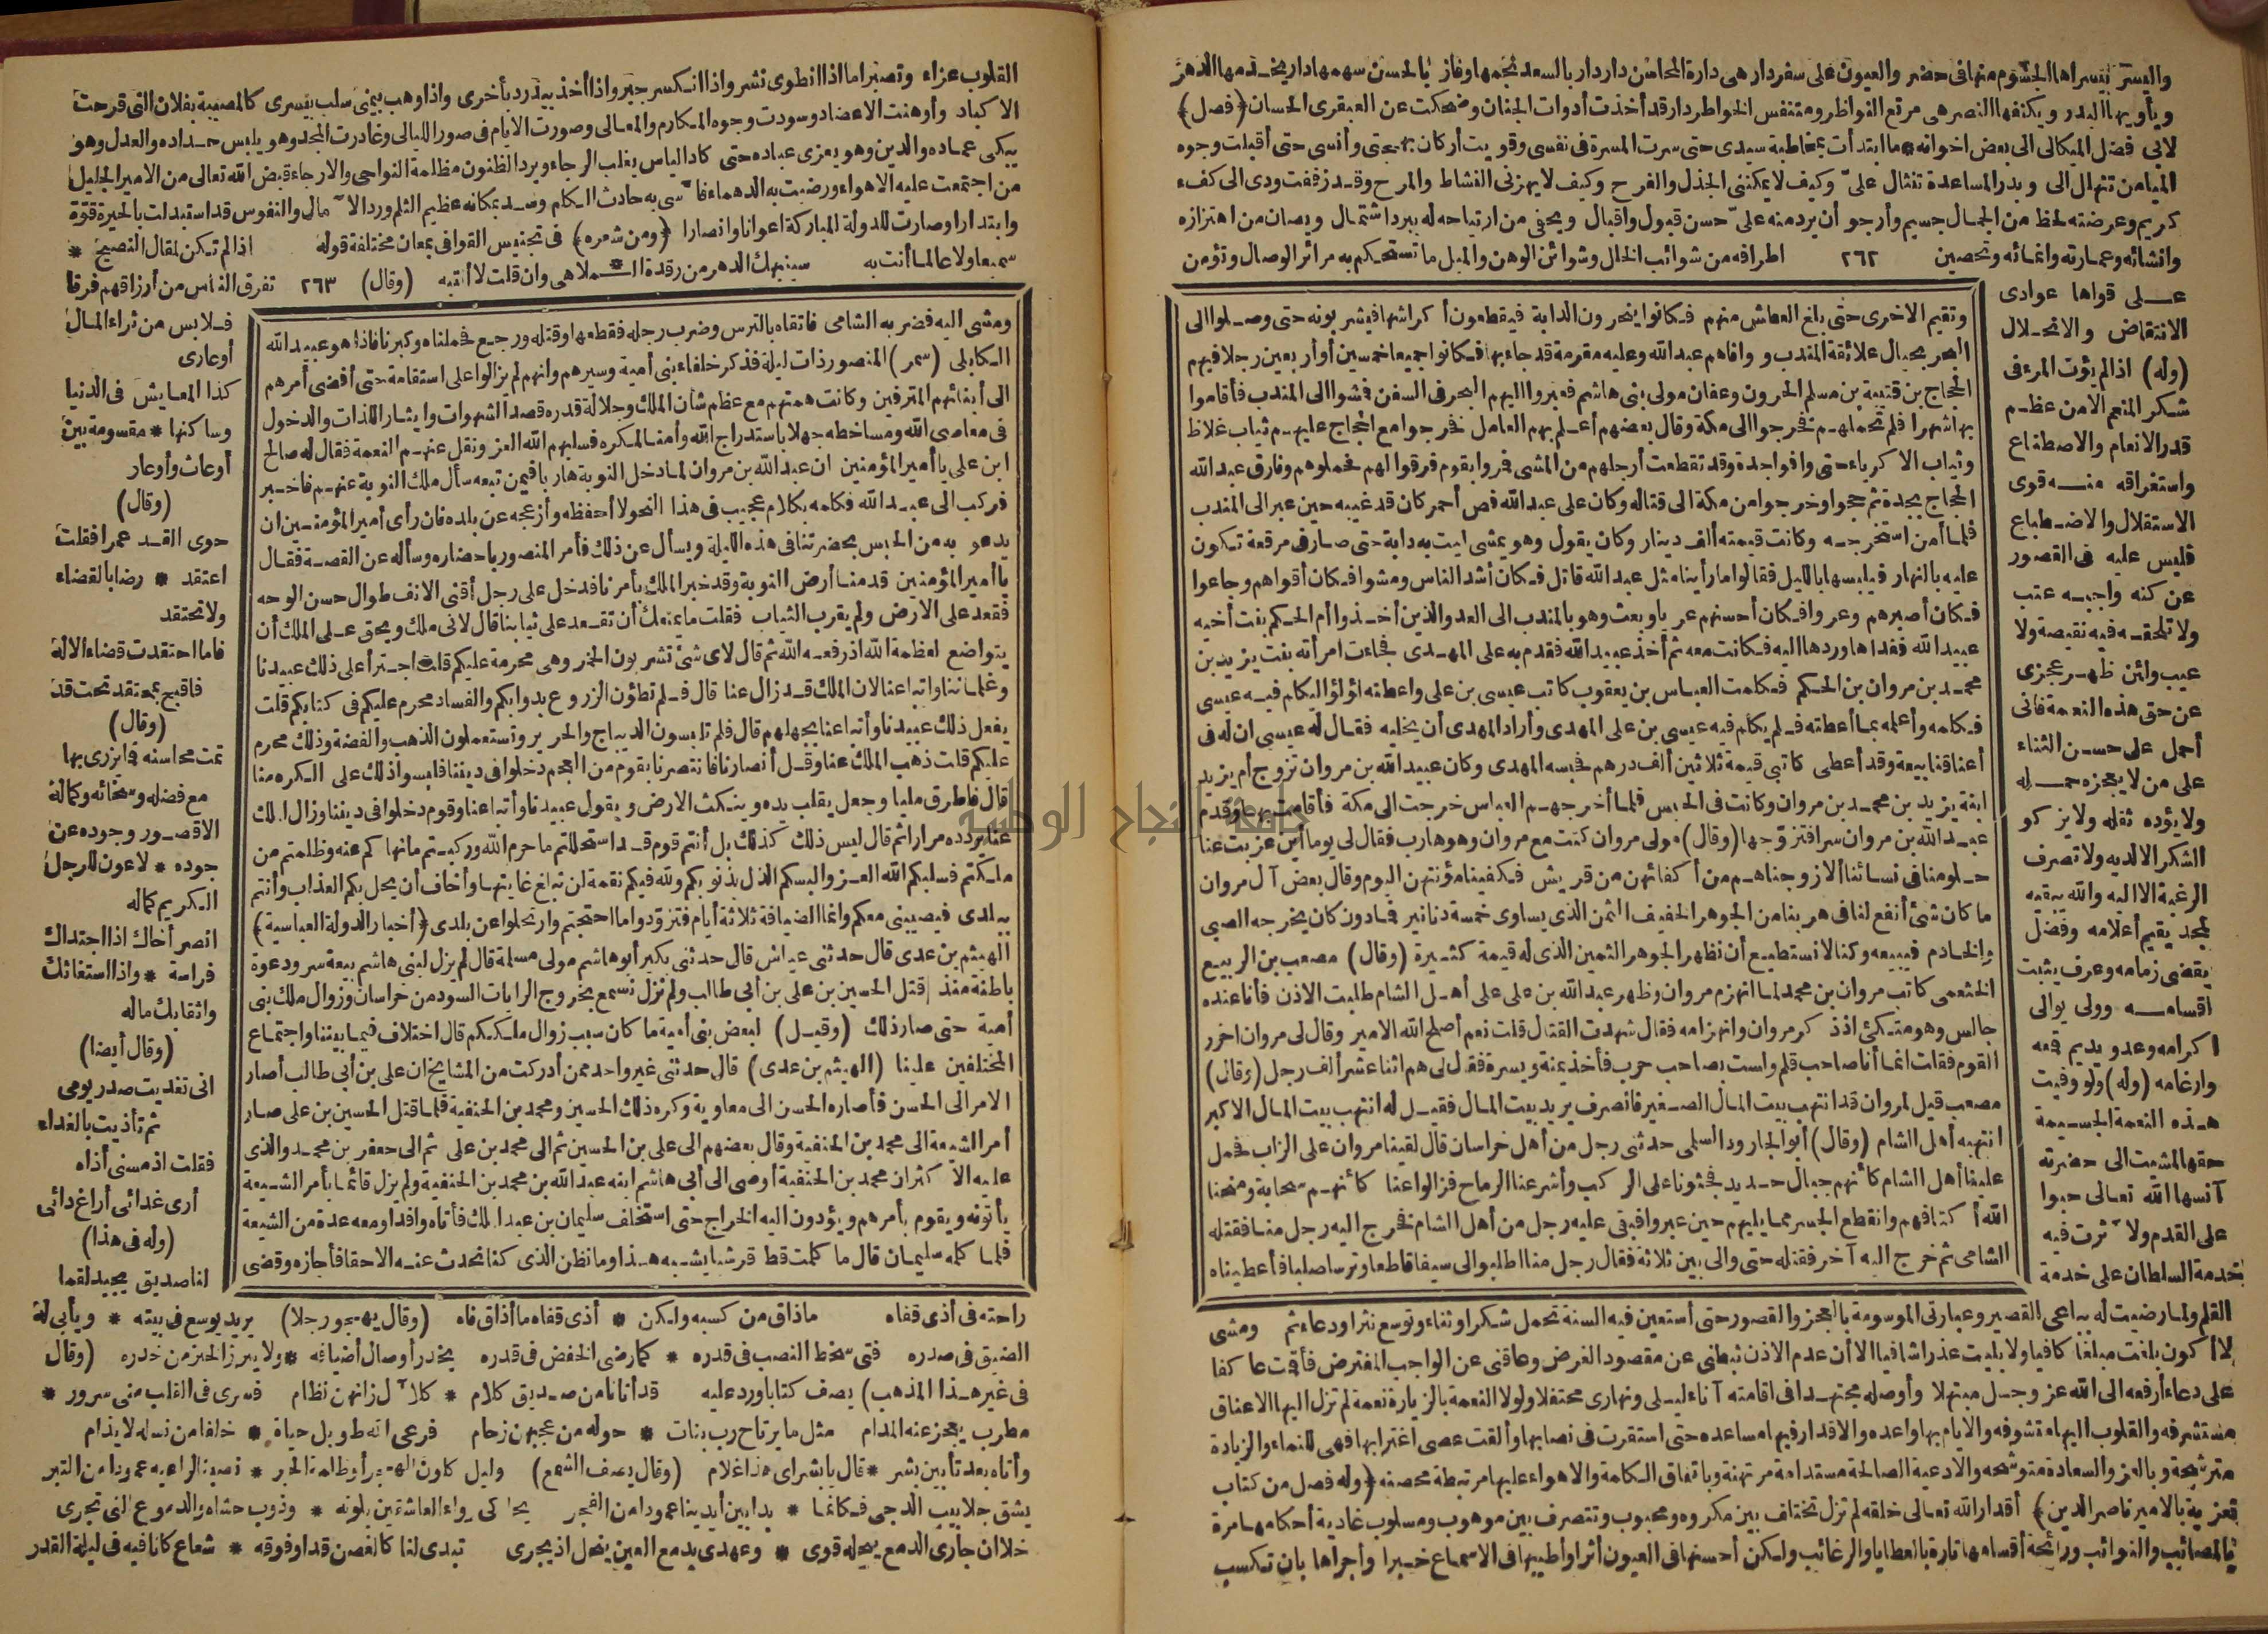 واليسر بيسراها الجسوم منها فى حضر والعيون على سفر دار هى دارة المحاسن دار دار بالسعد نجمها وفاز بالحسن سهمها دار يخدمها الدهر
ويأويها البدر ويكنفها النصر هى مرتع النواظر ومتنفس الخواطر دار قد أخذت أدوات الجنان وضحكت عن العبقرى الحسان (فصل)
لابى فضل الميكالى الى بعض اخوانه * ما ابتدأت بمخاطبة سيدى حتى سرت المسرة فى نفسى وقويت أركان بهجتى وأنسى حتى أقبلت وجوه
الميامن تنهال الى وبدر المساعدة تنثال علىّ وكيف لا يمكننى الجذل والفرح وكيف لا يهزنى النشاط والمرح وقد زففت ودى الى كفء
كريم وعرضته لحظ من الجمال جسيم وأرجو أن يرد منه علىّ حسن قبول واقبال ويحفى من ارتياحه له ببرد اشتمال ويصان من اهتزازه
وانشائه وعمارته وانمائه وتحصين ٢٦٢ اطرافه من شوائب الخلل وشوائن الوهن والميل ما تستحكم به مرائر الوصال وتؤمن
على قواها عوادى
الانتقاض والانحلال
(وله) اذا لم يؤت المرء فى
شكر المنعم الا من عظم
قدر الانعام والاصطناع
واستغراقه منه قوى
الاستقلال والاضطباع
فليس عليه فى القصور
عن كنه واجبه عتب
ولا تلحقه فيه نقيصة ولا
عيب ولئن ظهر عجزى
عن حق هذه النعمة فانى
أحيل على حسن الثناء
على من لا يعجزه حمله
ولا يؤده ثقله ولا يزكو
الشكر الا لديه ولا تصرف
الرغبة الا اليه والله يبقيه
لمجد يقيم أعلامه وفضل
يقضى زمامه وعرف يثبت
أقسامه وولى يوالى
اكرامه وعدو يديم قمعه
وارغامه (وله) ولو وفيت
هذه النعمة الجسيمة
حقها لمشيت الى حضرته
آنسها الله تعالى حبوا
على القدم ولآثرت فيه
خدمة السلطان على خدمة
وتقيم الاخرى حتى بلغ العطش منهم فكانوا ينحرون الدابة فيقطعون أكراشها فيشربونه حتى وصلوا الى
البحر بحيال علائقة المندب ووافاهم عبد الله وعليه مقرمة قد جاء بها فكانوا جميعا خمسين أو أربعين رجلا فيهم
الحجاج بن قتيبة بن مسلم الحرون وعفان مولى بنى هاشم فعبروا اليهم البحر فى السفن فمشوا الى المندب فأقاموا
بها شهرا فلم تحملهم فخرجوا الى مكة وقال بعضهم أعلم بهم العامل فخرجوا مع الحجاج عليهم ثياب غلاظ
وثياب الاكرياء حتى وافوا جدة وقد تقطعت أرجلهم من المشى فمروا بقوم فرقوا لهم فحملوهم وفارق عبد الله
الحجاج بجدة ثم حجوا وخرجوا من مكة الى قتاله وكان على عبد الله فص أحمر كان قد غيبه حين عبر الى المندب
فلما أمن استخرجه وكانت قيمته ألف دينار وكان يقول وهو يمشى ليت به دابة حتى صار فى مرقعة تكون
عليه بالنهار فيلبسها بالليل فقالوا ما رأينا مثل عبد الله قاتل فكان أشد الناس ومشوا فكان أقواهم وجاعوا
فكان أصبرهم وعروا فكان أحسنهم عريا وبعث وهو بالمندب الى العدو الذين أخذوا أم الحكم بنت أخيه
عبيد الله ففداها وردها اليه فكانت معه ثم أخذ عبيد الله فقدم به على المهدى فجاءت امرأته بنت يزيد بن
محمد بن مروان بن الحكم فكلمت العباس بن يعقوب كاتب عيسى بن على واعطته لؤلؤا ليكلم فيه عيسى
فكلمه وأعلمه بما أعطته فلم يكلم فيه عيسى بن على المهدى وأراد المهدى أن يخليه فقال له عيسى ان له فى
أعناقنا بيعة وقد أعطى كاتبى قيمة ثلاثين ألف درهم فحبسه المهدى وكان عبيد الله بن مروان تزوج أم يزيد
ابنة يزيد بن محمد بن مروان وكانت فى الحبس فلما أخرجهم العباس خرجت الى مكة فأقامت بها وقدم
عبيد الله بن مروان سرا فتزوّجها (وقال) مولى مروان كنت مع مروان وهو هارب فقال لى يوما أين عزبت عنا
حلومنا فى نسائنا ألا زوجناهم من أكفائهن من قريش فكفينا مؤنتهن اليوم وقال بعض آل مروان
ما كان شئ أنفع لنا فى هربنا من الجوهر الخفيف الثمن الذى يساوى خمسة دنانير فما دون كان يخرجه الصبى
والخادم فيبيعه وكنا لا نستطيع أن نظهر الجوهر الثمين الذى له قيمة كثيرة (وقال) مصعب بن الربيع
الخثعمى كاتب مروان بن محمد لما انهزم مروان وظهر عبد الله بن على على أهل الشام طلبت الاذن فأنا عنده
جالس وهو متكئ اذ ذكر مروان وانهزامه فقال شهدت القتال قلت نعم أصلح الله الامير وقال لى مروان احزر
القوم فقلت انما أنا صاحب قلم ولست بصاحب حرب فأخذ يمنة ويسرة فقال لى هم اثنا عشر ألف رجل (وقال)
مصعب قيل لمروان قد انتهب بيت المال الصغير فانصرف يريد بيت المال فقيل له انتهب بيت المال الاكبر
انتهبه أهل الشام (وقال) أبو الجارود السلمى حدثنى رجل من أهل خراسان قال لقينا مروان على الزاب فحمل
علينا أهل الشام كأنهم جبال حديد فجثونا على الركب وأشرعنا الرماح فزالوا عنا كأنهم سحابة ومنحنا
الله أكتافهم وانقطع الجسر مما يليهم حين عبروا فبقى عليه رجل من أهل الشام فخرج اليه رجل منا فقتله
الشامى ثم خرج اليه آخر فقتله حتى والى بين ثلاثة فقال رجل منا اطلبوا لى سيفا قاطعا وترسا صلبا فأعطيناه
القلم ولما رضيت له بباعى القصير وعبارتى الموسومة بالعجز والقصور حتى أستعين فيه السنة تحمل شكرا وثناء وتوسع نثرا ودعاء ثم ومشى
لا أكون بلغت مبلغا كافيا ولا أبليت عذرا شافيا الا أن عدم الاذن ثبطنى عن مقصود الغرض وعاقنى عن الواجب المفترض فأقت عاكفا
على دعاء أرفعه الى الله عز وجل مبتهلا وأوصله مجتهدا فى اقامته آناء ليلى ونهارى محتفلا ولولا النعمة بالزيارة نعمة لم تزل اليها الاعناق
مستشرفه والقلوب اليها متشوفه والايام بها واعده والاقدار فيها مساعده حتى استقرت فى نصابها وألقت عصى اغترابها فهى للنماء والزيادة
مترشحة وبالعز والسعادة متوشحه والادعية الصالحة مستدامة مرتهنة وباتفاق الكلمة والاهواء عليها مرتبطة محصنه (وله فصل من كتاب
تعزية بالامير ناصر الدين) أقدار الله تعالى خلقه لم تزل تختلف بين مكروه ومحبوب وتتصرف بين موهوب ومسلوب غادية أحكامها مرة
بالمصائب والنوائب ورائحة أقسامها تارة بالعطايا والرغائب ولكن أحسنها فى العيون أثرا وأطيبها فى الاسماع خبرا وأحراها بان تكسب
القلوب عزاء وتصبرا ما اذا انطوى نشر واذا انكسر جبر واذا أخذ بيد رد بأخرى واذا وهب بيمنى سلب بيسرى كالمصيبة بفلان التى قرحت
الاكباد وأوهنت الاعضاد وسودت وجوه المكارم والمعالى وصورت الايام فى صور الليالى وغادرت المجد وهو يلبس حداده والعدل وهو
يبكى عماده والدين وهو يعزى عباده حتى كاد الياس يغلب الرجاء ويرد الظنون مظلمة النواحى والارجاء قبض الله تعالى من الامير الجليل
من اجتمعت عليه الاهواء ورضيت به الدهماء فأسى به حادث الكلم وسد بمكانه عظيم الثلم ورد الآمال والنفوس قد استبدلت بالحيرة قوّة
وابتدارا وصارت للدولة المباركة اعوانا وانصارا (ومن شعره) فى تجنيس القوافى بمعان مختلفة قوله اذا لم تكن لمقال النصيح *
سميعا ولا عاملا أنت به سينبهك الدهر من رقدة الملاهى وان قلت لا أنتبه (وقال) ٢٦٣ تفرق الناس من أرزاقهم فرقا
فلابس من ثراء المال
أو عارى
كذا المعايش فى الدنيا
وساكنها * مقسومة بين
أوعاث وأوعار
(وقال)
حوى القد عمرا فقلت
اعتقد * رضا بالقضاء
ولا تحتقد
فاما احتقدت قضاء الاله
فاقبح بمعتقد تحت قد
(وقال)
تمت محاسنه فما يزرى بها
مع فضله وسخائه وكماله
الا قصور وجوده عن
جوده * لا عون للرجل
الكريم كماله
انصر أخاك اذا اجتداك
فراسة * واذا استغاثك
واثقا بك ماله
(وقال أيضا)
انى تغديت صدر يومى
ثم تأذيت بالغداء
فقلت اذ مسنى أذاه
أرى غدائى أراغ دائى
(وله فى هذا)
لنا صديق يجيد لقما
ومشى اليه فضربه الشامى فاتقاه بالترس وضرب رجله فقطعها وقتله ورجع فحملناه وكبرنا فاذا هو عبيد الله
الكابلى (سمر) المنصور ذات ليلة فذكر خلفاء بنى أمية وسيرهم وانهم لم يزالوا على استقامة حتى أفضى أمرهم
الى أبنائهم المترفين وكانت همتهم مع عظم شأن الملك وجلالة قدره قصد الشهوات وايثار اللذات والدخول
فى معاصى الله ومساخطه جهلا باستدراج الله وأمنا لمكره فسلبهم الله العز ونقل عنهم النعمة فقال له صالح
ابن على يا أمير المؤمنين ان عبد الله بن مروان لما دخل النوبة هاربا فيمن تبعه سأل ملك النوبة عنهم فاخبر
فركب الى عبيد الله فكلمه بكلام عجيب فى هذا النحو لا أحفظه وأزعجه عن بلده فان رأى أمير المؤمنين ان
يدعو به من الحبس بحضرتنا فى هذه الليلة ويسأل عن ذلك فأمر المنصور باحضاره وسأله عن القصة فقال
يا أمير المؤمنين قدمنا أرض النوبة وقد خبر الملك بأمرنا فدخل على رجل أقنى الانف طوال حسن الوجه
فقعد على الارض ولم يقرب الثياب فقلت ما يمنعك أن تقعد على ثيابنا قال لانى ملك ويحق على الملك أن
يتواضع لعظمة الله اذ رفعه الله ثم قال لاى شئ تشربون الخمر وهى محرمة عليكم قلت اجترأ على ذلك عبيدنا
وغلماننا واتباعنا لان الملك قد زال عنا قال فلم تطؤن الزروع بدوابكم والفساد محرم عليكم فى كتابكم قلت
يفعل ذلك عبيدنا وأتباعنا بجهلهم قال فلم تلبسون الديباج والحرير وتستعملون الذهب والفضة وذلك محرم
عليكم قلت ذهب الملك عنا وقل أنصارنا فانتصرنا بقوم من العجم دخلوا فى ديننا فلبسوا ذلك على الكره منا
قال فاطرق مليا وجعل يقلب يده وينكت الارض ويقول عبيدنا وأتباعنا وقوم دخلوا فى ديننا وزال الملك
عنا يردده مرارا ثم قال ليس ذلك كذلك بل أنتم قوم قد استحللتم ما حرم الله وركبتم ما نهاكم عنه وظلمتم من
ملكتم فسلبكم الله العز وألبسكم الذل بذنوبكم ولله فيكم نقمة لن تبلغ غايتها وأخاف أن يحل بكم العذاب وأنتم
ببلدى فيصيبنى معكم وانما الضيافة ثلاثة أيام فتزوّدوا ما احتجتم وارتحلوا عن بلدى (أخبار الدولة العباسية)
الهيثم بن عدى قال حدثنى عياش قال حدثنى بكير أبو هاشم مولى مسلمة قال لم يزل لبنى هاشم بيعة سر ودعوة
باطنة منذ قتل الحسين بن على بن أبى طالب ولم نزل نسمع بخروج الرايات السود من خراسان وزوال ملك بنى
أمية حتى صار ذلك (وقيل) لبعض بنى أمية ما كان سبب زوال ملككم قال اختلاف فيما بيننا واجتماع
المختلفين علينا (الهيثم بن عدى) قال حدثنى غير واحد ممن أدركت من المشايخ ان على بن أبى طالب أصار
الامر الى الحسن فأصاره الحسن الى معاوية وكره ذلك الحسين ومحمد بن الحنفية فلما قتل الحسين بن على صار
أمر الشيعة الى محمد بن الحنفية وقال بعضهم الى على بن الحسين ثم الى محمد بن على ثم الى جعفر بن محمد والذى
عليه الاكثر ان محمد بن الحنفية أوصى الى أبى هاشم ابنه عبد الله بن محمد بن الحنفية ولم يزل قائما بأمر الشيعة
يأتونه ويقوم بأمرهم ويؤدون اليه الخراج حتى استخلف سليمان بن عبد الملك فأتاه وافدا ومعه عدة من الشيعة
فلما كلمه سليمان قال ما كلمت قط قرشيا يشبه هذا وما نظن الذى كنا نحدث عنه الا حقا فأجازه وقضى
راحته فى أذى قفاه ماذاق من كسبه ولكن * أذى قفاه ما أذاق فاه (وقال يهجو رجلا) يريد يوسع فى بيته * ويأبى له
الضيق فى صدره فتى سخط النصب فى قدره * كما رضى الخفض فى قدره يخدر أوصال أضيافه * ولا يبرز الخبز من خدره (وقال
فى غير هذا المذهب) يصف كتابا ورد عليه قد أتانا من صديق كلام * كلآل زانهن نظام فسرى فى القلب منى سرور *
مطرب يعجز عنه المدام مثل ما يرتاح رب بنات * حوله من عجبهن زحام فرعى الله طويل حياة * خلفا من نسله لا يذام
وأتاه بعد تأبين بشر * قال يا بشراى هذا غلام (وقال يصف الشمع) وليل كلون الهجر أو ظلمة الحبر * نصبنا لراعيه عمودا من التبر
يشق جلابيب الدجى فكانما * بدا بين أيدينا عمودا من الفجر يحاكى رواء العاشقين بلونه * وذوب حشاه والدموع التى تجرى
خلا ان جارى الدمع ينحله قوى * وعهدى بدمع العين ينحل اذ يجرى تبدى لنا كالغصن قدا وفوقه * شعاع كانا فيه فى ليلة القدر
جامعة النجاح الوطنية